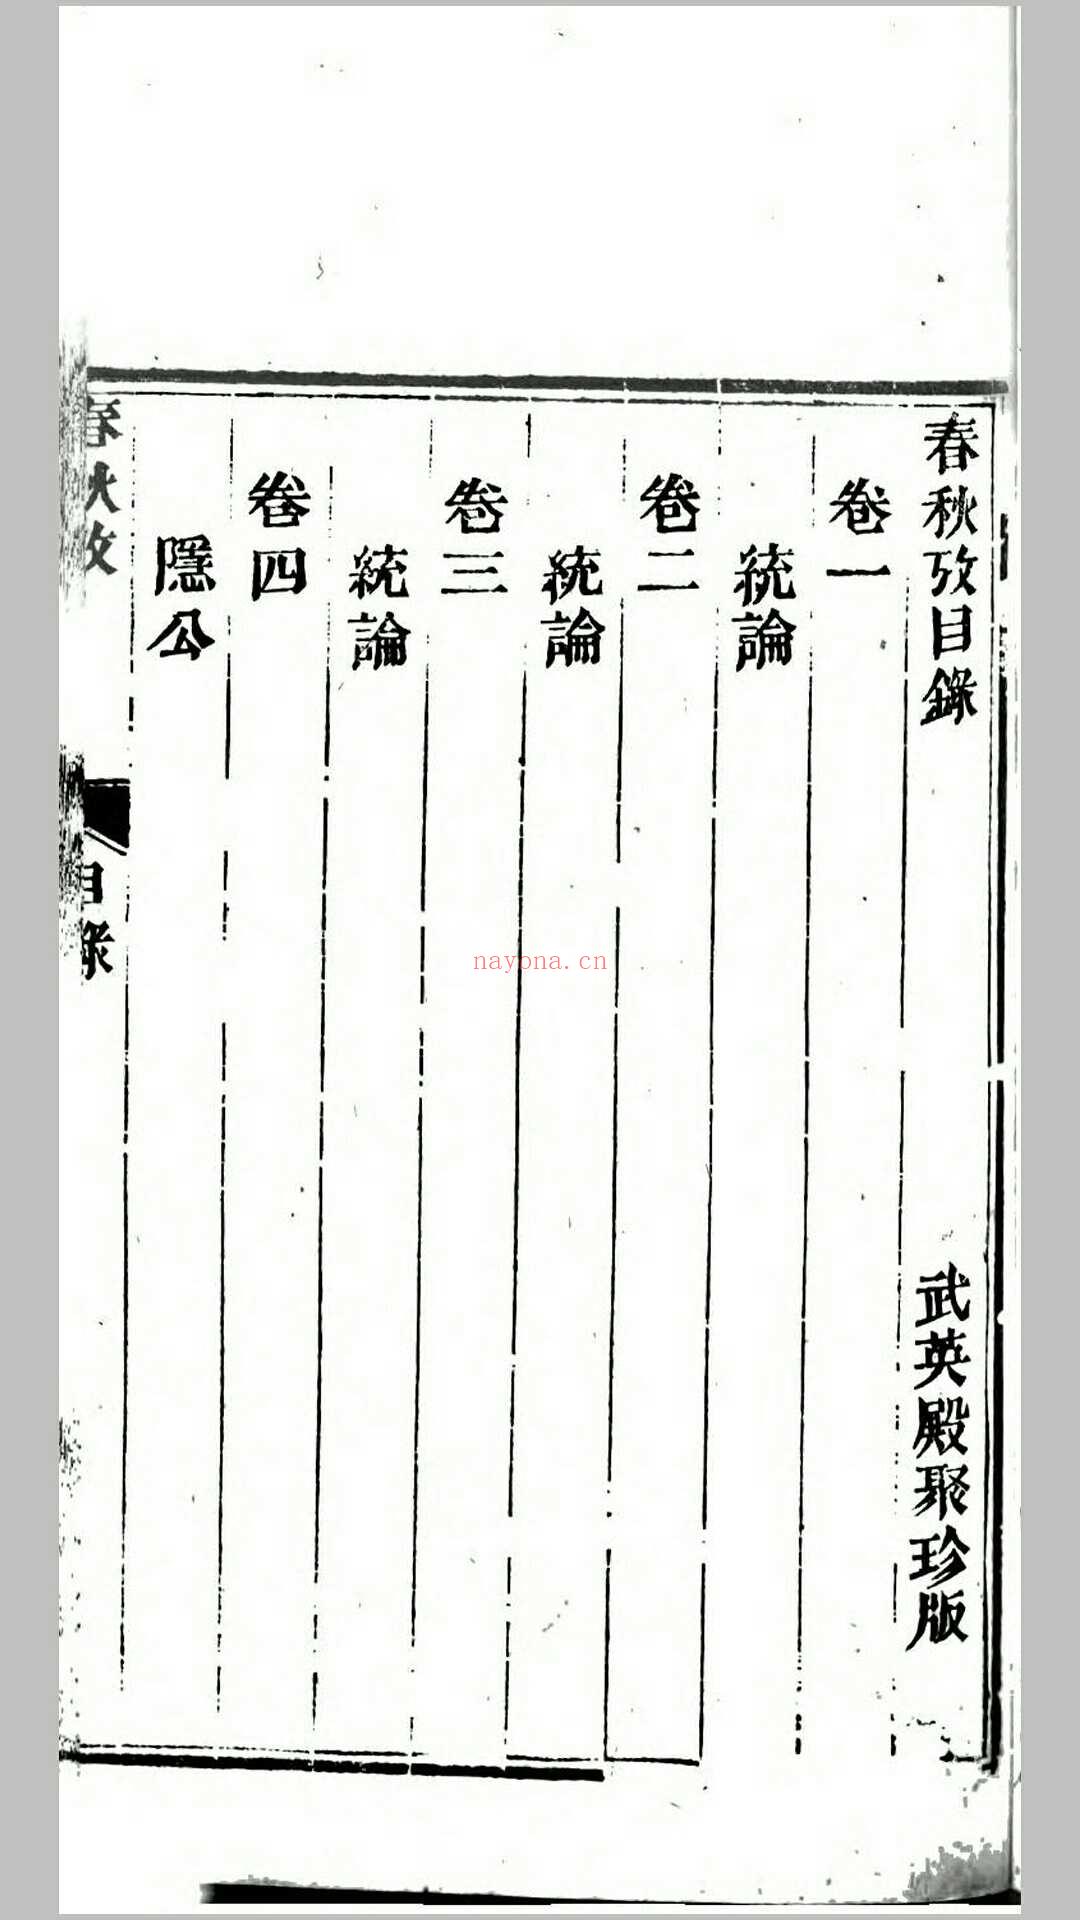 春秋攷目錄
武英殿聚珍版
卷一
統論
卷二
統論
卷三
統論
卷四
隱公
春秋攷
目錄
nayona.cn